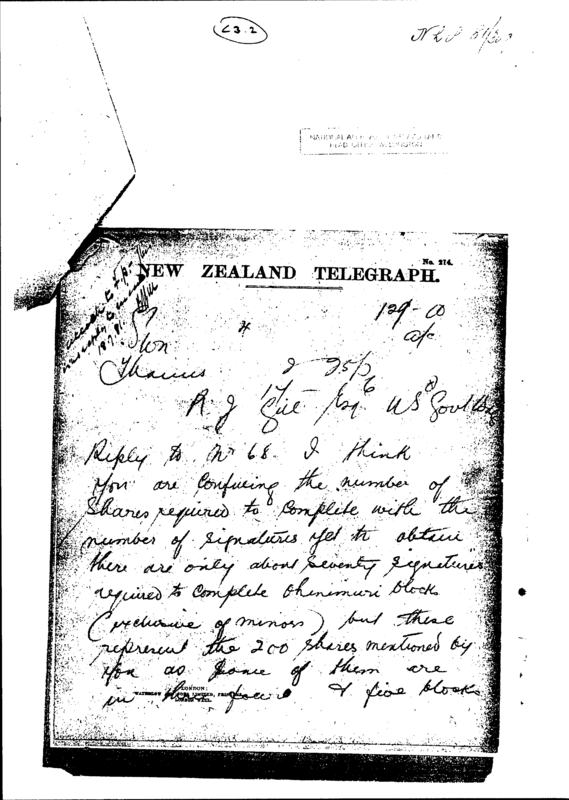 C3.2
NLP
NATIONAL
HEAD OFFICE, WELLINGTON
No. 214.
NEW ZEALAND TELEGRAPH.
129-00
Thames
R J Gill Esq US Govt Bgs
Reply to No 68. I think
you are confusing the number of
Shares required to complete with the
number of signatures yet to obtain
there are only about seventy signatures
required to complete Ohinemuri block
(exclusive of minors) but these
represent the 200 shares mentioned by
you as some of them are
in four & five blocks
LONDON: